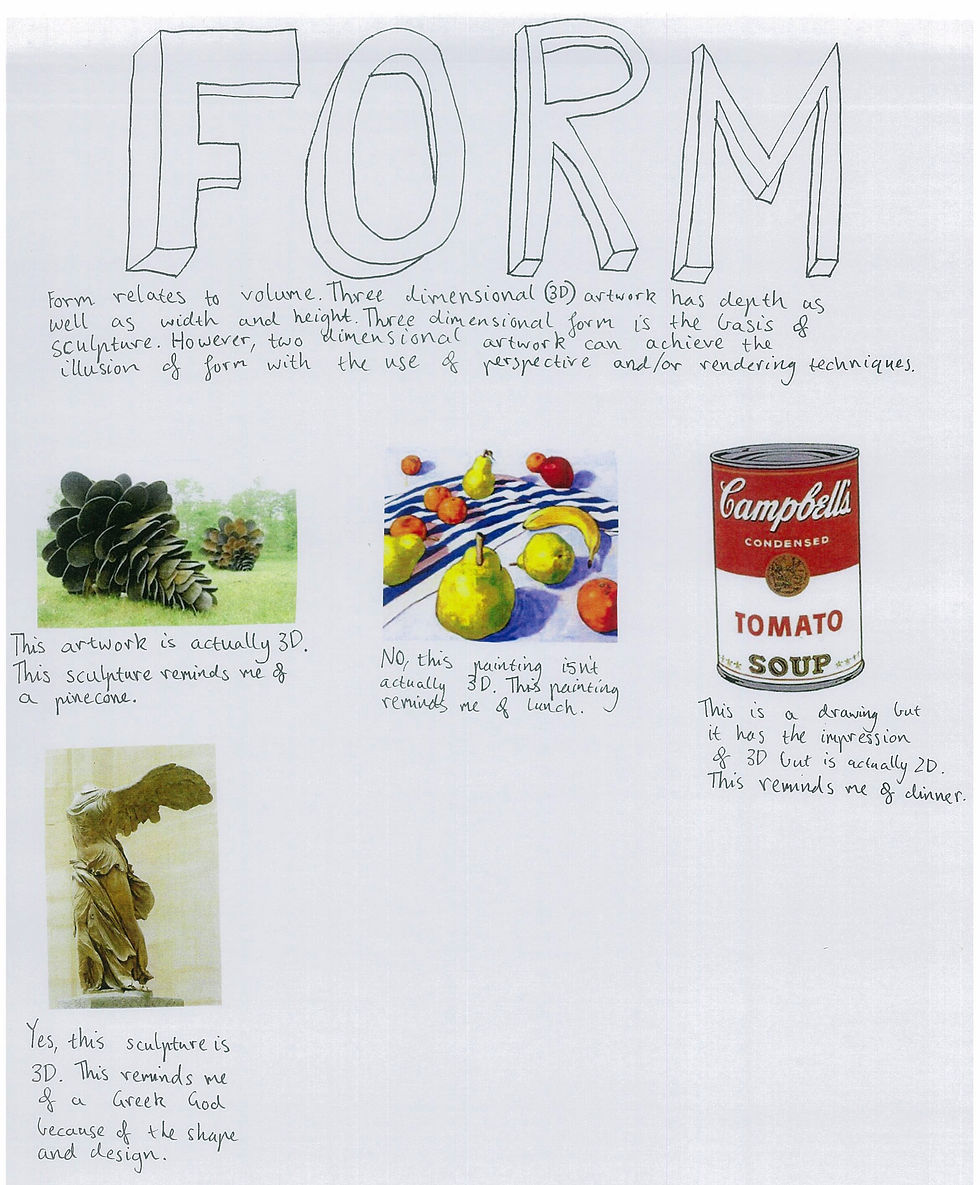 FORM
Form relates to volume. Three dimensional (3D) artwork has depth as
well as width and height. Three dimensional form is the basis of
sculpture. However, two dimensional artwork can achieve the
illusion of form with the use of perspective and/or rendering techniques.
This artwork is actually 3D.
This sculpture reminds me of
a pinecone.
NO, this painting isn't
actually 3D. This painting
reminds me of lunch.
Campbell's
CONDENSED
TOMATO
SOUP
This is a drawing but
it has the impression
of 3D but is actually 2D.
This reminds me of dinner.
Yes, this sculpture is
3D. This reminds me
of a Greek God
because of the shape
and design.